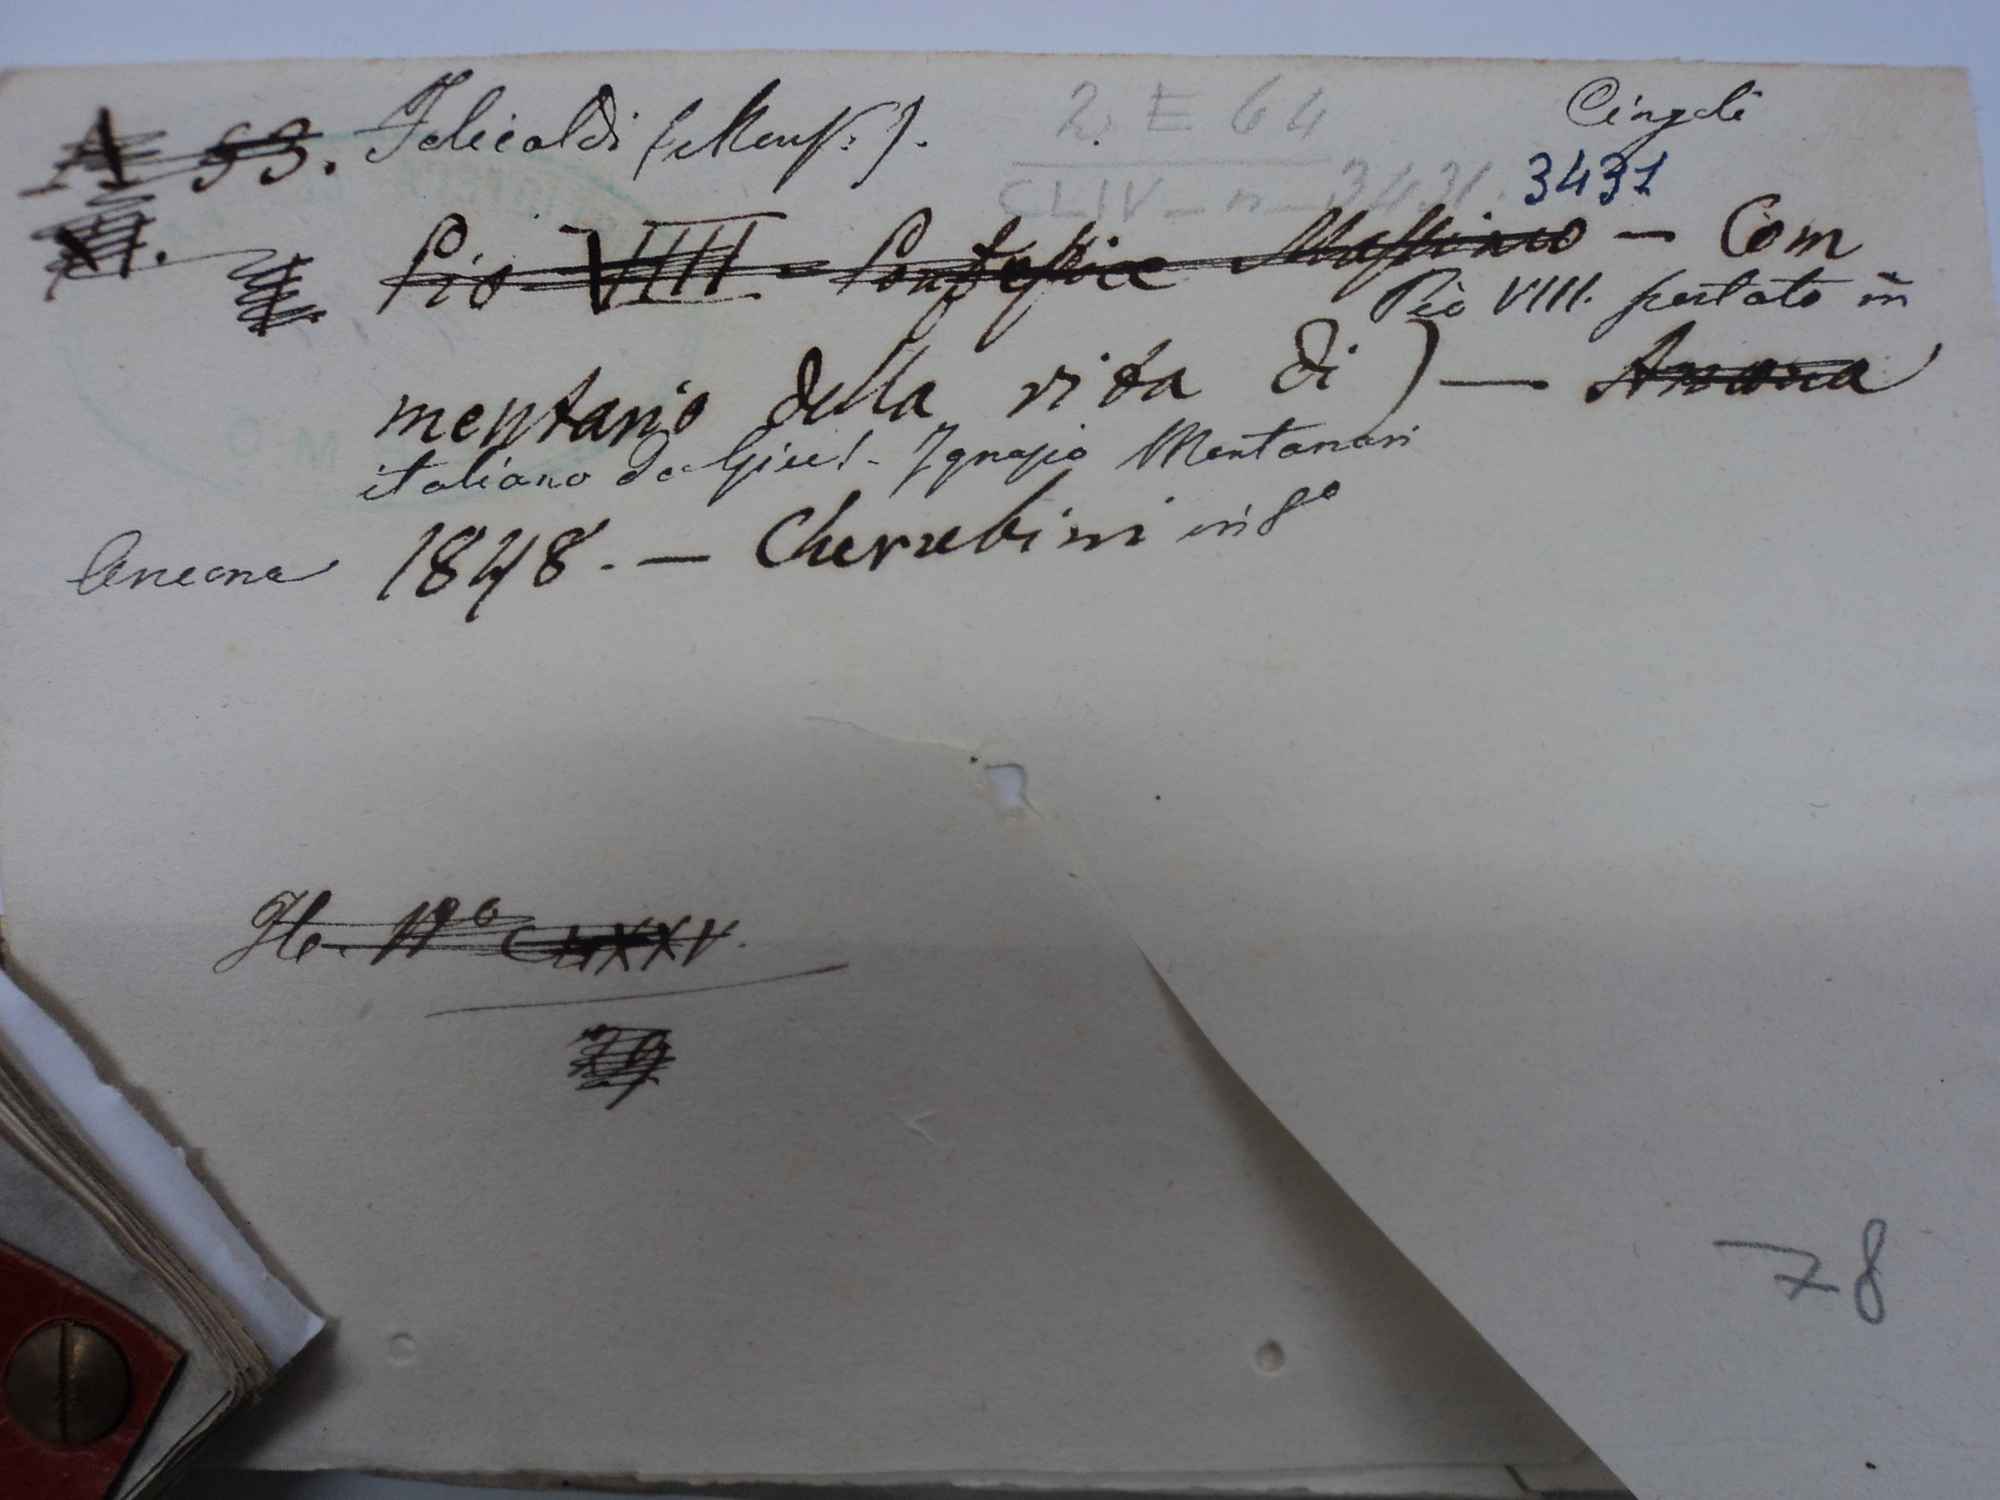 Cingoli
A 53. Felicaldi (Monsr.).
2. E 64
CLIV - n - 3431.
3431
Pio VIII - Pontefice Massimo — Com
Pio VIII. portato in
mentario della vita di) — Ancona
italiano da Gius. Ignazio Montanari
Ancona 1848. — Cherubini in 8o
No CLXXV.
78